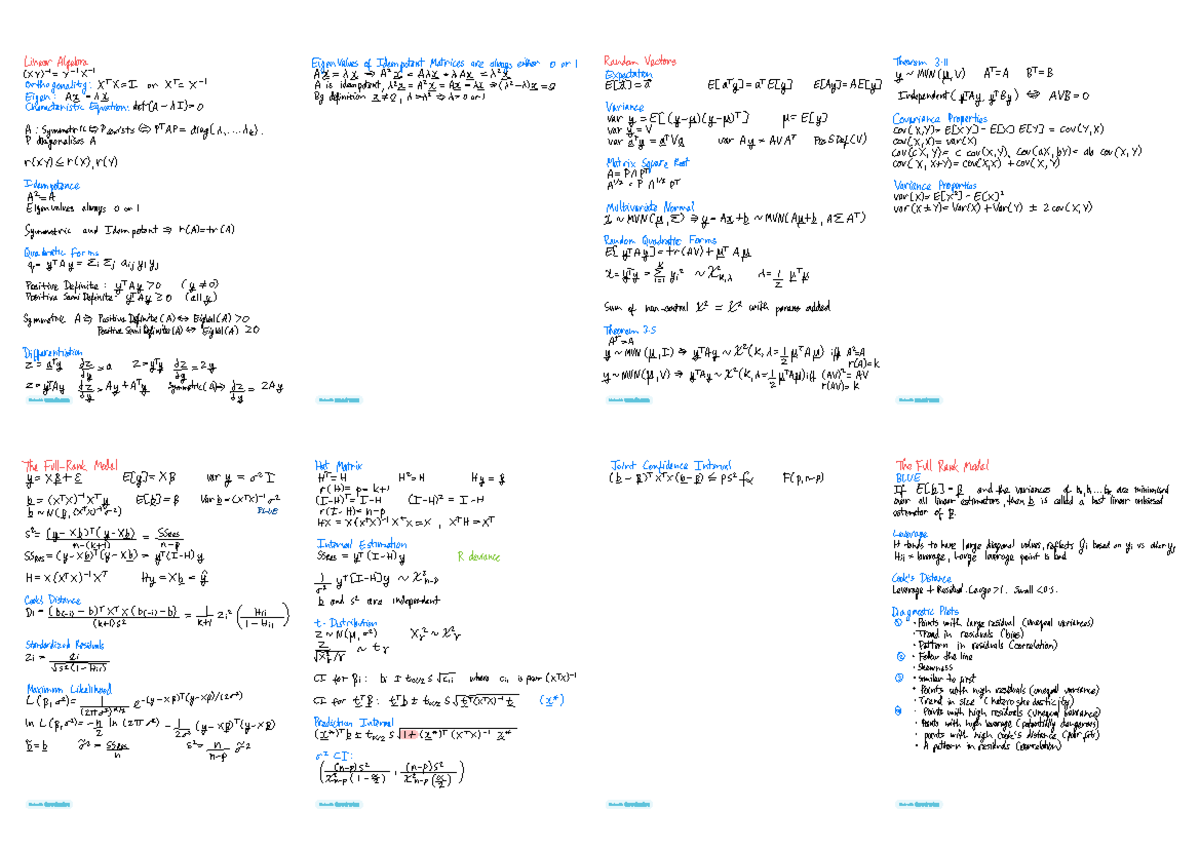 Linear Algebra
(XY)⁻¹ = Y⁻¹X⁻¹
Orthogonality: XᵀX = I or Xᵀ = X⁻¹
Eigen: Ax = λx
Characteristic Equation: det(A - λI) = 0
A: Symmetric ⇔ P exists ⇔ PᵀAP = diag(λ, ... λₖ).
P diagonalises A
r(XY) ≤ r(X), r(Y)
Idempotence
A² = A
Eigenvalues always 0 or 1
Symmetric and Idempotent ⇒ r(A) = tr(A)
Quadratic Forms
q = yᵀAy = Σᵢ Σⱼ aᵢⱼ yᵢ yⱼ
Positive Definite: yᵀAy > 0 (y ≠ 0)
Positive Semi Definite: yᵀAy ≥ 0 (all y)
Symmetric A ⇒ Positive Definite (A) ⇔ EigVal(A) > 0
Positive Semi Definite (A) ⇔ EigVal(A) ≥ 0
Differentiation
z = aᵀy ∂z/∂y = a z = yᵀy ∂z/∂y = 2y
z = yᵀAy ∂z/∂y = Ay + Aᵀy Symmetric(A) ⇒ ∂z/∂y = 2Ay
Eigenvalues of Idempotent Matrices are always either 0 or 1
Ax = λx ⇒ A²x = Aλx = λAx = λ²x
A is idempotent, λ²x = A²x = Ax = λx ⇒ (λ² - λ)x = 0
By definition x ≠ 0, λ = λ² ⇒ λ = 0 or 1
Random Vectors
Expectation
E[a] = a E[aᵀy] = aᵀE[y] E[Ay] = AE[y]
Variance
var y = E[(y-μ)(y-μ)ᵀ] μ = E[y]
var y = V
var aᵀy = aᵀVa var Ay = AVAᵀ PosSDef(V)
Matrix Square Root
A = PΛPᵀ
A^1/2 = PΛ^1/2 Pᵀ
Multivariate Normal
x ~ MVN(μ, Σ) ⇒ y = Ax + b ~ MVN(Aμ + b, AΣAᵀ)
Random Quadratic Forms
E[yᵀAy] = tr(AV) + μᵀAμ
x = yᵀy = Σ yᵢ² ~ χ²ₖ,λ λ = 1/2 μᵀμ
Sum of non-central χ² = χ² with params added
Theorem 3.5
Aᵀ = A
y ~ MVN(μ, I) ⇒ yᵀAy ~ χ²(k, λ = 1/2 μᵀAμ) iff A² = A
r(A) = k
y ~ MVN(μ, V) ⇒ yᵀAy ~ χ²(k, λ = 1/2 μᵀAμ) iff (AV)² = AV
r(AV) = k
Theorem 3.11
y ~ MVN(μ, V) Aᵀ = A Bᵀ = B
Independent(yᵀAy, yᵀBy) ⇔ AVB = 0
Covariance Properties
cov(X,Y) = E[XY] - E[X]E[Y] = cov(Y,X)
cov(X,X) = var(X)
cov(cX,Y) = c cov(X,Y), cov(aX,bY) = ab cov(X,Y)
cov(X, X+Y) = cov(X,X) + cov(X,Y)
Variance Properties
var[X] = E[X²] - E[X]²
var(X±Y) = Var(X) + Var(Y) ± 2cov(X,Y)
The Full-Rank Model
y = Xβ + ε E[y] = Xβ var y = σ²I
b = (XᵀX)⁻¹Xᵀy E[b] = β Var b = (XᵀX)⁻¹σ²
b ~ N(β, (XᵀX)⁻¹σ²) BLUE
s² = (y-Xb)ᵀ(y-Xb) / n-(k+1) = SSRes / n-p
SSRes = (y-Xb)ᵀ(y-Xb) = yᵀ(I-H)y
H = X(XᵀX)⁻¹Xᵀ Hy = Xb = ŷ
Cook's Distance
Dᵢ = (b(-i) - b)ᵀXᵀX(b(-i) - b) / (k+1)s² = 1/(k+1) zᵢ² (Hᵢᵢ / 1-Hᵢᵢ)
Standardized Residuals
zᵢ = eᵢ / √s²(1-Hᵢᵢ)
Maximum Likelihood
L(β,σ²) = 1/(2πσ²)^n/2 e^-(y-Xβ)ᵀ(y-Xβ)/(2σ²)
ln L(β,σ²) = -n/2 ln(2πσ²) - 1/2σ² (y-Xβ)ᵀ(y-Xβ)
β̃ = b σ̃² = SSRes/n s² = n/(n-p) σ̃²
Hat Matrix
Hᵀ = H H² = H Hy = ŷ
r(H) = p = k+1
(I-H)ᵀ = I-H (I-H)² = I-H
r(I-H) = n-p
HX = X(XᵀX)⁻¹XᵀX = X, XᵀH = Xᵀ
Interval Estimation
SSRes = yᵀ(I-H)y R deviance
1/σ² yᵀ[I-H]y ~ χ²n-p
b and s² are independent
t-Distribution
Z ~ N(μ,σ²) Xᵧ² ~ χ²ᵧ
Z / √Xᵧ²/γ ~ tᵧ
CI for βᵢ: bᵢ ± tα/2 s√cᵢᵢ where cᵢᵢ is from (XᵀX)⁻¹
CI for tᵀβ: tᵀb ± tα/2 s√tᵀ(XᵀX)⁻¹t (x*)
Prediction Interval
(x*)ᵀb ± tα/2 s√1+(x*)ᵀ(XᵀX)⁻¹x*
σ² CI:
( (n-p)s² / χ²n-p(1-α/2) , (n-p)s² / χ²n-p(α/2) )
Joint Confidence Interval
(b-β)ᵀXᵀX(b-β) ≤ ps²fα F(p,n-p)
The Full Rank Model
BLUE
If E[b] = β and the variances of b₀ b₁ ... bₖ are minimised
over all linear estimators, then b is called a best linear unbiased
estimator of β.
Leverage
H tends to have large diagonal values, reflects ŷᵢ based on yᵢ vs other yⱼ
Hᵢᵢ = leverage, Large leverage point is bad
Cook's Distance
Leverage + Residual. Large > 1. Small < 0.5.
Diagnostic Plots
① • Points with large residual (unequal variances)
• Trend in residuals (bias)
• Pattern in residuals (correlation)
② • Follow the line
• Skewness
③ • Similar to first
• Points with high residuals (unequal variance)
• Trend in size (heteroskedasticity)
④ • Points with high residuals (unequal variance)
• Points with high leverage (potentially dangerous)
• points with high Cook's distance (poor fits)
• A pattern in residuals (correlation)